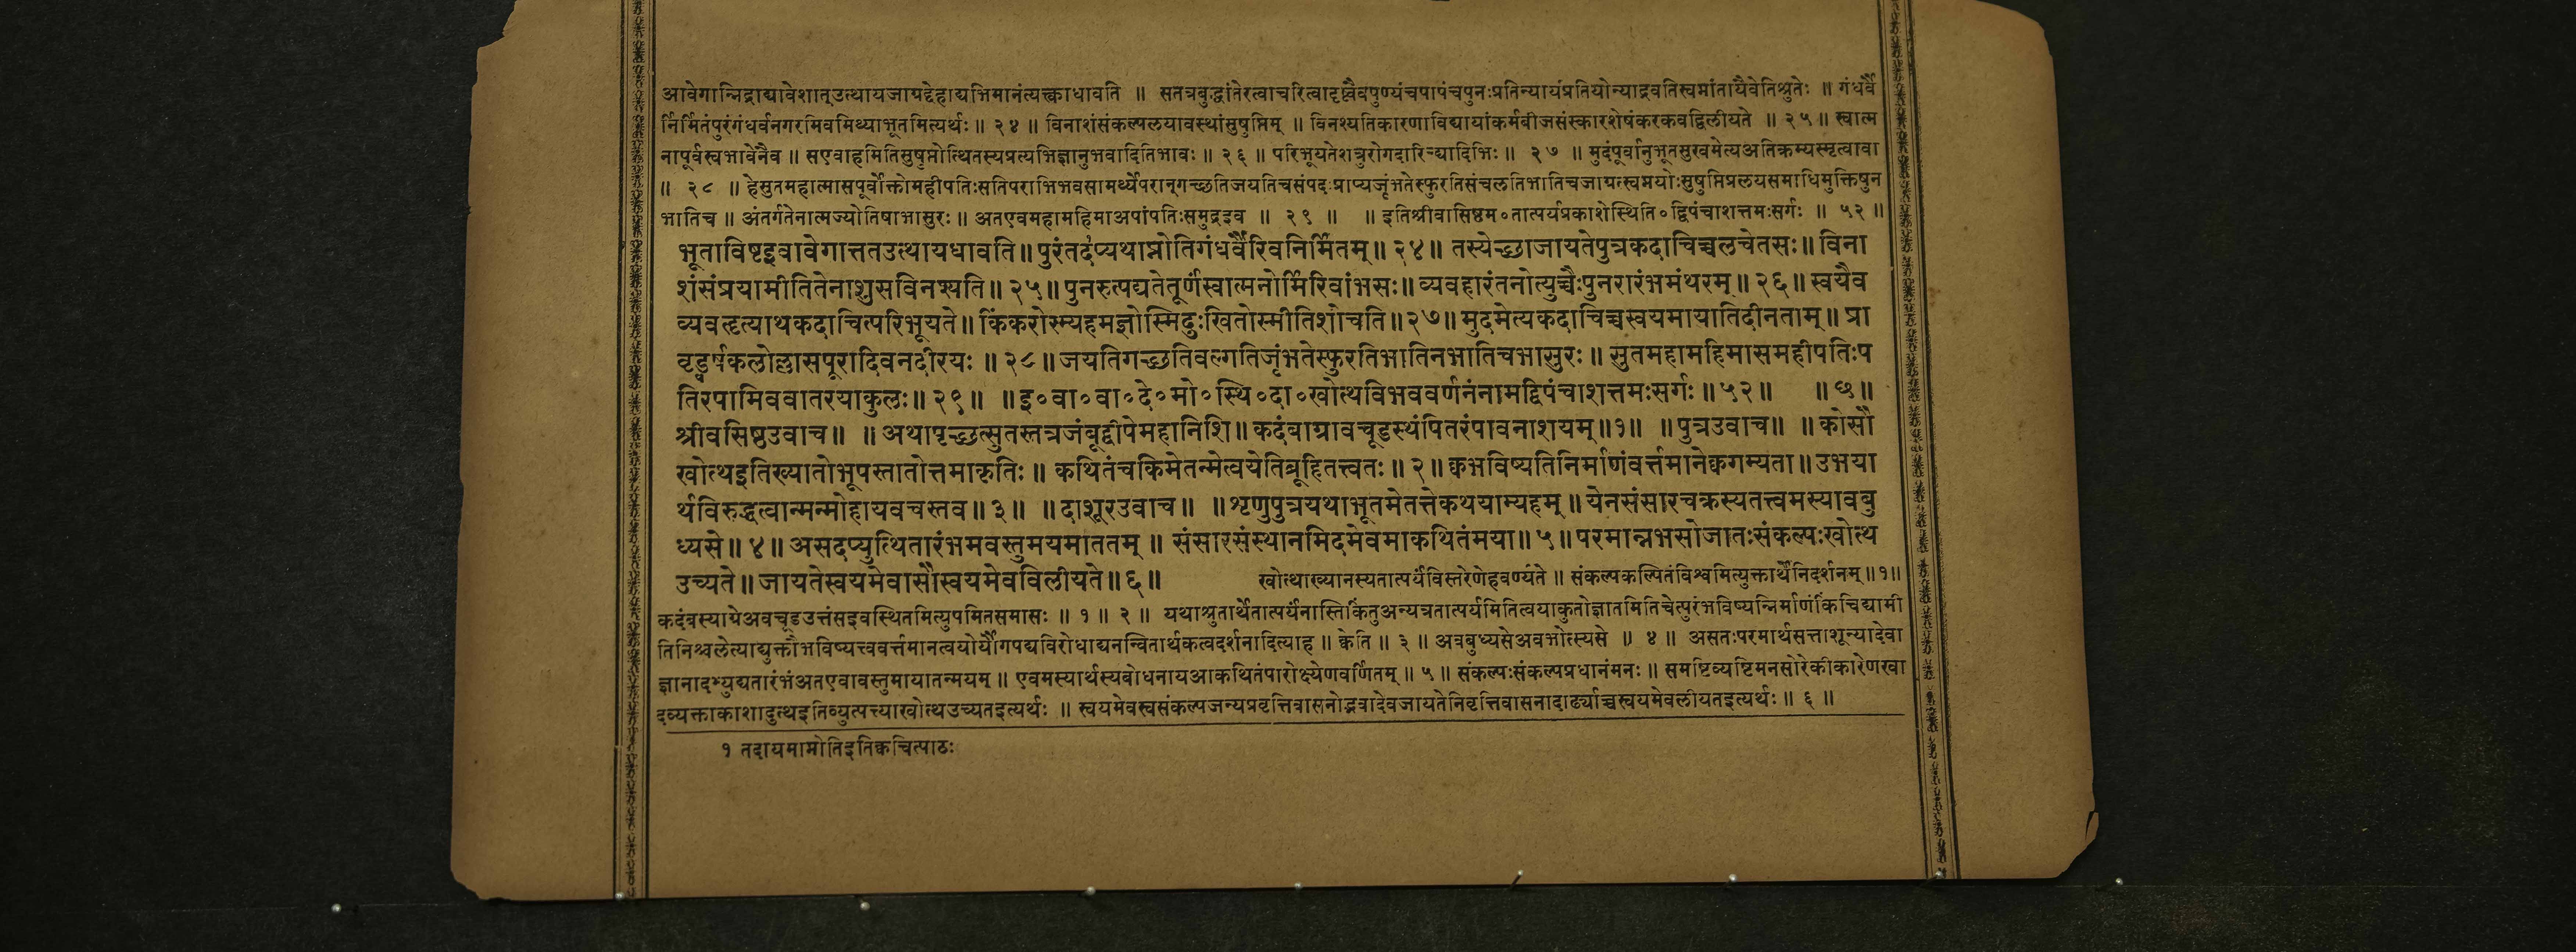 आवेगान्निद्राद्यावेशात्उत्थायजाग्रद्देहाद्यभिमानंत्यक्त्वाधावति ॥ सतत्रबुद्धांतेरत्वाचरित्वादृष्ट्वैवपुण्यंचपापंचपुनःप्रतिन्यायंप्रतियोन्याद्रवतिस्वप्नांतायैवेतिश्रुतेः ॥ गंधर्वै
र्निर्मितंपुरंगंधर्वनगरमिवमिथ्याभूतमित्यर्थः ॥ २४ ॥ विनाशंसंकल्पलयावस्थांसुषुप्तिम् ॥ विनश्यतिकारणाविद्यायांकर्मबीजसंस्कारशेषंकरकवद्विलीयते ॥ २५ ॥ स्वात्म
नापूर्वस्वभावेनैव ॥ सएवाहमितिसुषुप्तोत्थितस्यप्रत्यभिज्ञानुभवादितिभावः ॥ २६ ॥ परिभूयतेशत्रुरोगदारिद्र्यादिभिः ॥ २७ ॥ मुदंपूर्वानुभूतसुखमेत्यअतिक्रम्यस्मृत्वावा
॥ २८ ॥ हेसुतमहात्मासपूर्वोक्तोमहीपतिःसतिपराभिभवसामर्थ्येपरान्गच्छतिजयतिचसंपदःप्राप्यजृंभतेस्फुरतिसंचलतिभातिचजाग्रत्स्वप्नयोःसुषुप्तिप्रलयसमाधिमुक्तिषुन
भातिच ॥ अंतर्गतेनात्मज्योतिषाभासुरः ॥ अतएवमहामहिमाअपांपतिःसमुद्रइव ॥ २९ ॥ ॥ इतिश्रीवासिष्ठम॰तात्पर्यप्रकाशेस्थिति॰द्विपंचाशत्तमःसर्गः ॥ ५२ ॥
भूताविष्टइवावेगात्ततउत्थायधावति ॥ पुरंतदं१प्यथाप्नोतिगंधर्वैरिवनिर्मितम् ॥ २४ ॥ तस्येच्छाजायतेपुत्रकदाचिच्चलचेतसः ॥ विना
शंसंप्रयामीतितेनाशुसविनश्यति ॥ २५ ॥ पुनरुत्पद्यतेतूर्णंस्वात्मनोर्मिरिवांभसः ॥ व्यवहारंतनोत्युच्चैःपुनरारंभमंथरम् ॥ २६ ॥ स्वयैव
व्यवहृत्याथकदाचित्परिभूयते ॥ किंकरोस्म्यहमज्ञोस्मिदुःखितोस्मीतिशोचति ॥ २७ ॥ मुदमेत्यकदाचिच्चस्वयमायातिदीनताम् ॥ प्रा
वृड्वर्षकलोल्लासपूरादिवनदीरयः ॥ २८ ॥ जयतिगच्छतिवल्गतिजृंभतेस्फुरतिभातिनभातिचभासुरः ॥ सुतमहामहिमासमहीपतिःप
तिरपामिववातरयाकुलः ॥ २९ ॥ ॥ इ॰वा॰वा॰दे॰मो॰स्थि॰दा॰खोत्थविभववर्णनंनामद्विपंचाशत्तमःसर्गः ॥ ५२ ॥ ॥ छ ॥
श्रीवसिष्ठउवाच ॥ ॥ अथापृच्छत्सुतस्तत्रजंबूद्वीपेमहानिशि ॥ कदंबाग्रावचूडस्थंपितरंपावनाशयम् ॥ १ ॥ ॥ पुत्रउवाच ॥ ॥ कोसौ
खोत्थइतिख्यातोभूपस्तातोत्तमाकृतिः ॥ कथितंचकिमेतन्मेत्वयेतिब्रूहितत्त्वतः ॥ २ ॥ क्वभविष्यतिनिर्माणंवर्त्तमानेक्वगम्यता ॥ उभया
र्थविरुद्धत्वान्मन्मोहायवचस्तव ॥ ३ ॥ ॥ दाशूरउवाच ॥ ॥ शृणुपुत्रयथाभूतमेतत्तेकथयाम्यहम् ॥ येनसंसारचक्रस्यतत्त्वमस्यावबु
ध्यसे ॥ ४ ॥ असदप्युत्थितारंभमवस्तुमयमाततम् ॥ संसारसंस्थानमिदमेवमाकथितंमया ॥ ५ ॥ परमान्नभसोजातःसंकल्पःखोत्थ
उच्यते ॥ जायतेस्वयमेवासौस्वयमेवविलीयते ॥ ६ ॥ खोत्थाख्यानस्यतात्पर्यंविस्तरेणेहवर्ण्यते ॥ संकल्पकल्पितंविश्वमित्युक्तार्थेनिदर्शनम् ॥ १ ॥
कदंबस्याग्रेअवचूडउत्तंसइवस्थितमित्युपमितसमासः ॥ १ ॥ २ ॥ यथाश्रुतार्थेतात्पर्यंनास्तिकिंतुअन्यत्रतात्पर्यमितित्वयाकुतोज्ञातमितिचेत्पुरंभविष्यन्निर्माणंकिंचिद्यामी
तिनिश्चलेत्याद्युक्तौभविष्यत्त्ववर्त्तमानत्वयोर्यौगपद्यविरोधाद्यनन्वितार्थकत्वदर्शनादित्याह ॥ क्वेति ॥ ३ ॥ अवबुध्यसेअवभोत्स्यसे ॥ ४ ॥ असतःपरमार्थसत्ताशून्यादेवा
ज्ञानादभ्युद्यतारंभंअतएवावस्तुमायातन्मयम् ॥ एवमस्यार्थस्यबोधनायआकथितंपारोक्ष्येणवर्णितम् ॥ ५ ॥ संकल्पःसंकल्पप्रधानंमनः ॥ समष्टिव्यष्टिमनसोरेकीकारेणखा
दव्यक्ताकाशादुत्थइतिव्युत्पत्त्याखोत्थउच्यतइत्यर्थः ॥ स्वयमेवस्वसंकल्पजन्यप्रवृत्तिवासनोद्भवादेवजायतेनिवृत्तिवासनादार्ढ्याच्चस्वयमेवलीयतइत्यर्थः ॥ ६ ॥
१ तदायमाप्नोतिइतिक्वचित्पाठः